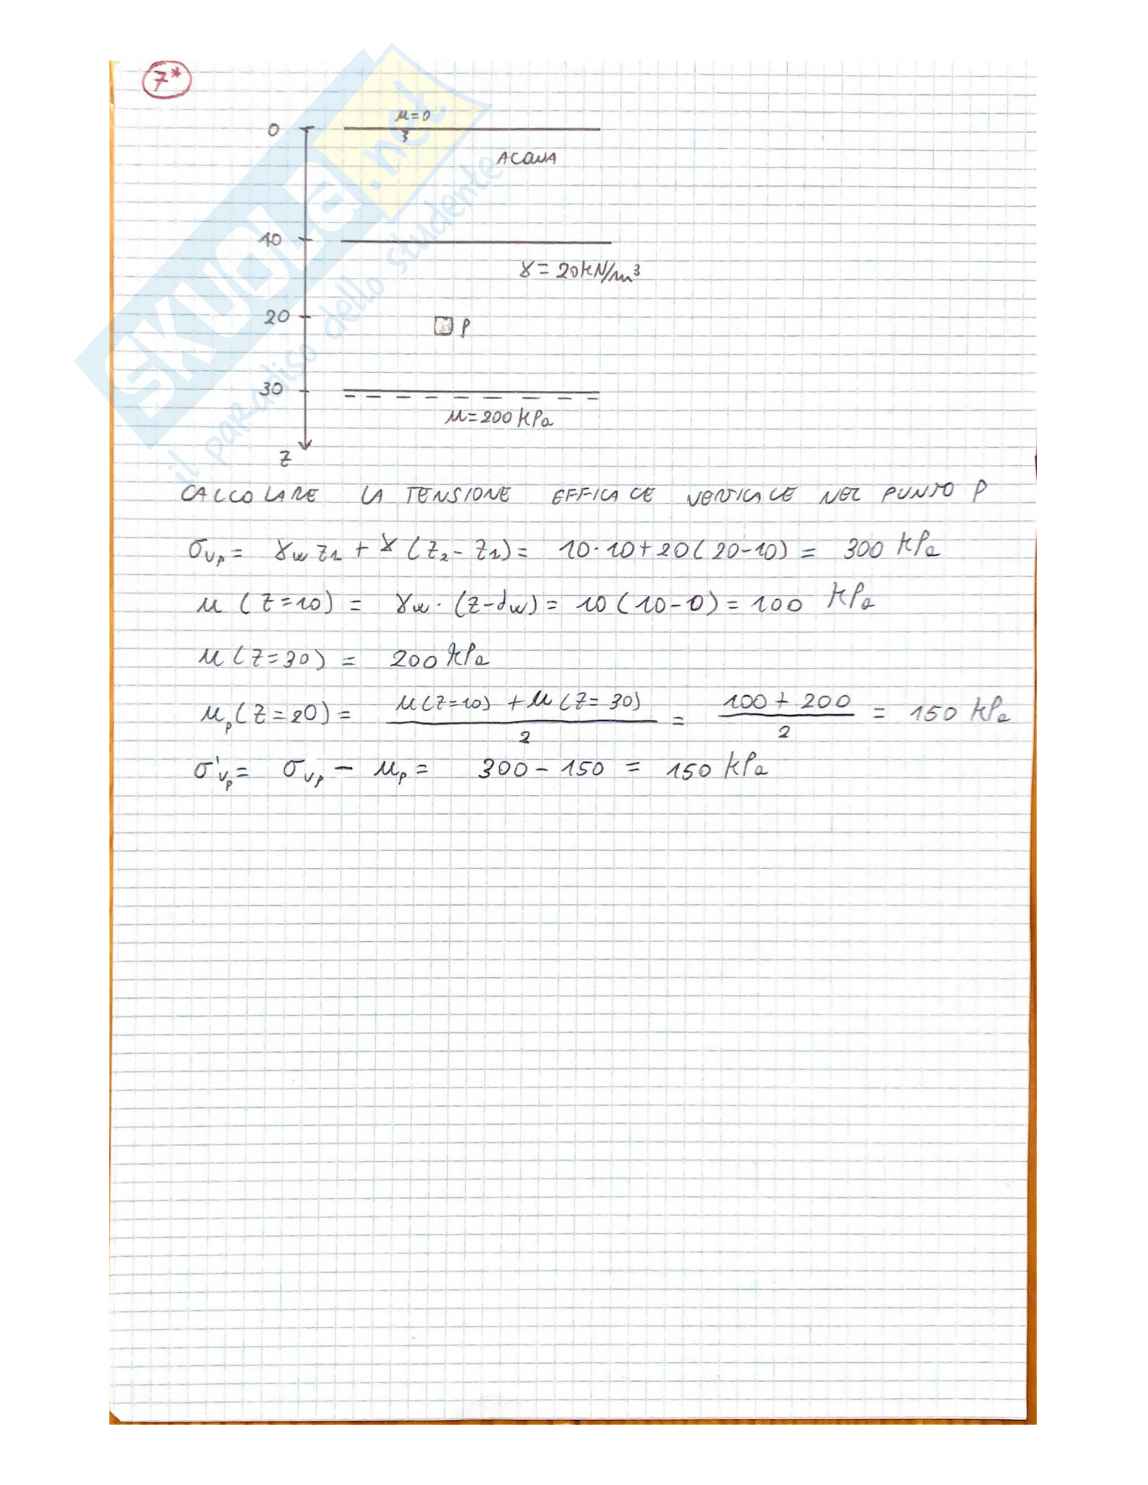 7*
μ=0
0
3
ACQUA
10
γ = 20 kN/m³
20
P
30
μ=200 kPa
z
SKUOLA.net
il paradiso dello studente
CALCOLARE LA TENSIONE EFFICACE VERTICALE NEL PUNTO P
σvp = γw z1 + γ (z2 - z1) = 10·10+20(20-10) = 300 kPa
μ (z=10) = γw · (z-dw) = 10 (10-0) = 100 kPa
μ (z=30) = 200 kPa
μp (z=20) = μ(z=10) + μ(z=30) / 2 = 100 + 200 / 2 = 150 kPa
σ'vp = σvp - μp = 300 - 150 = 150 kPa